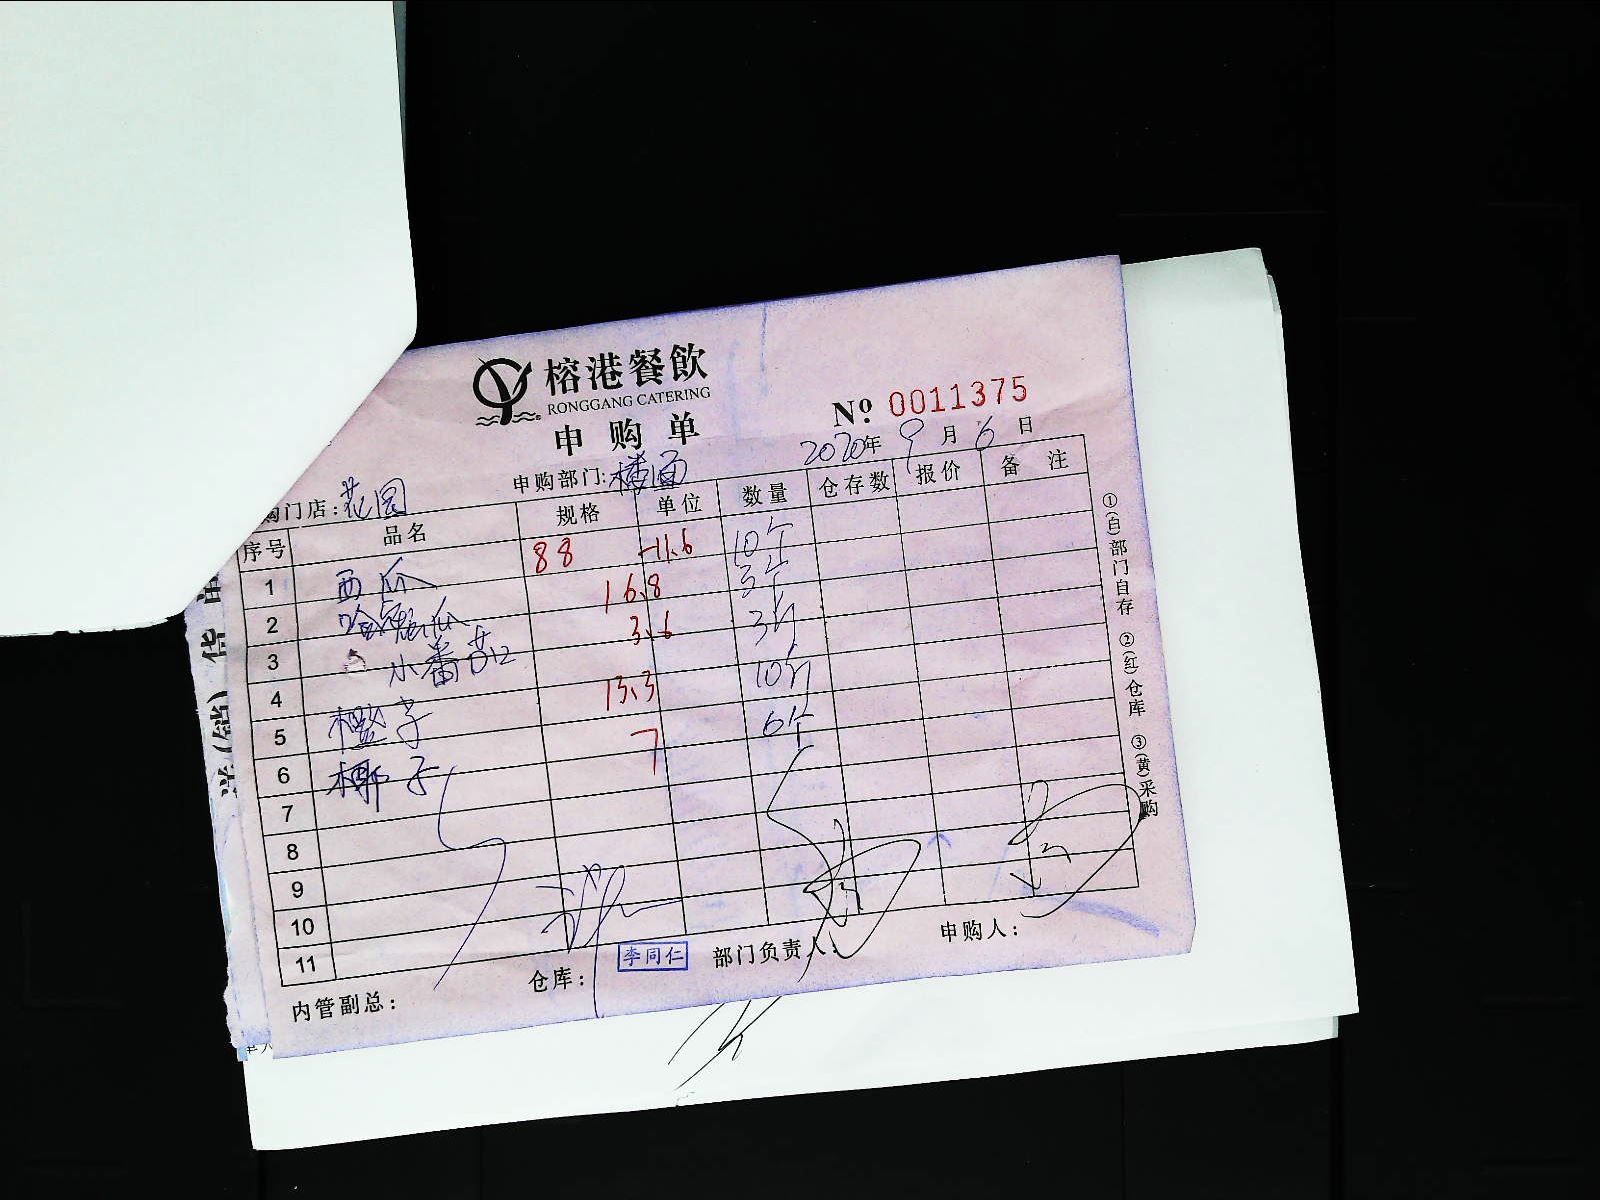 榕港餐飲
RONGGANG CATERING
申购单
№ 0011375
2020年 9月 6日
购门店: 花园 申购部门: 楼面
序号 品名 规格 单位 数量 仓存数 报价 备注
1 西瓜 88 -11.6 10个
2 哈密瓜 16.8 3个
3 小番茄 3.6 3斤
4 13.3 10斤
5 橙子 7 6个
6 椰子
7
8
9
10
11
内管副总: 仓库: 李同仁 部门负责人: 申购人:
①(白)部门自存 ②(红)仓库 ③(黄)采购